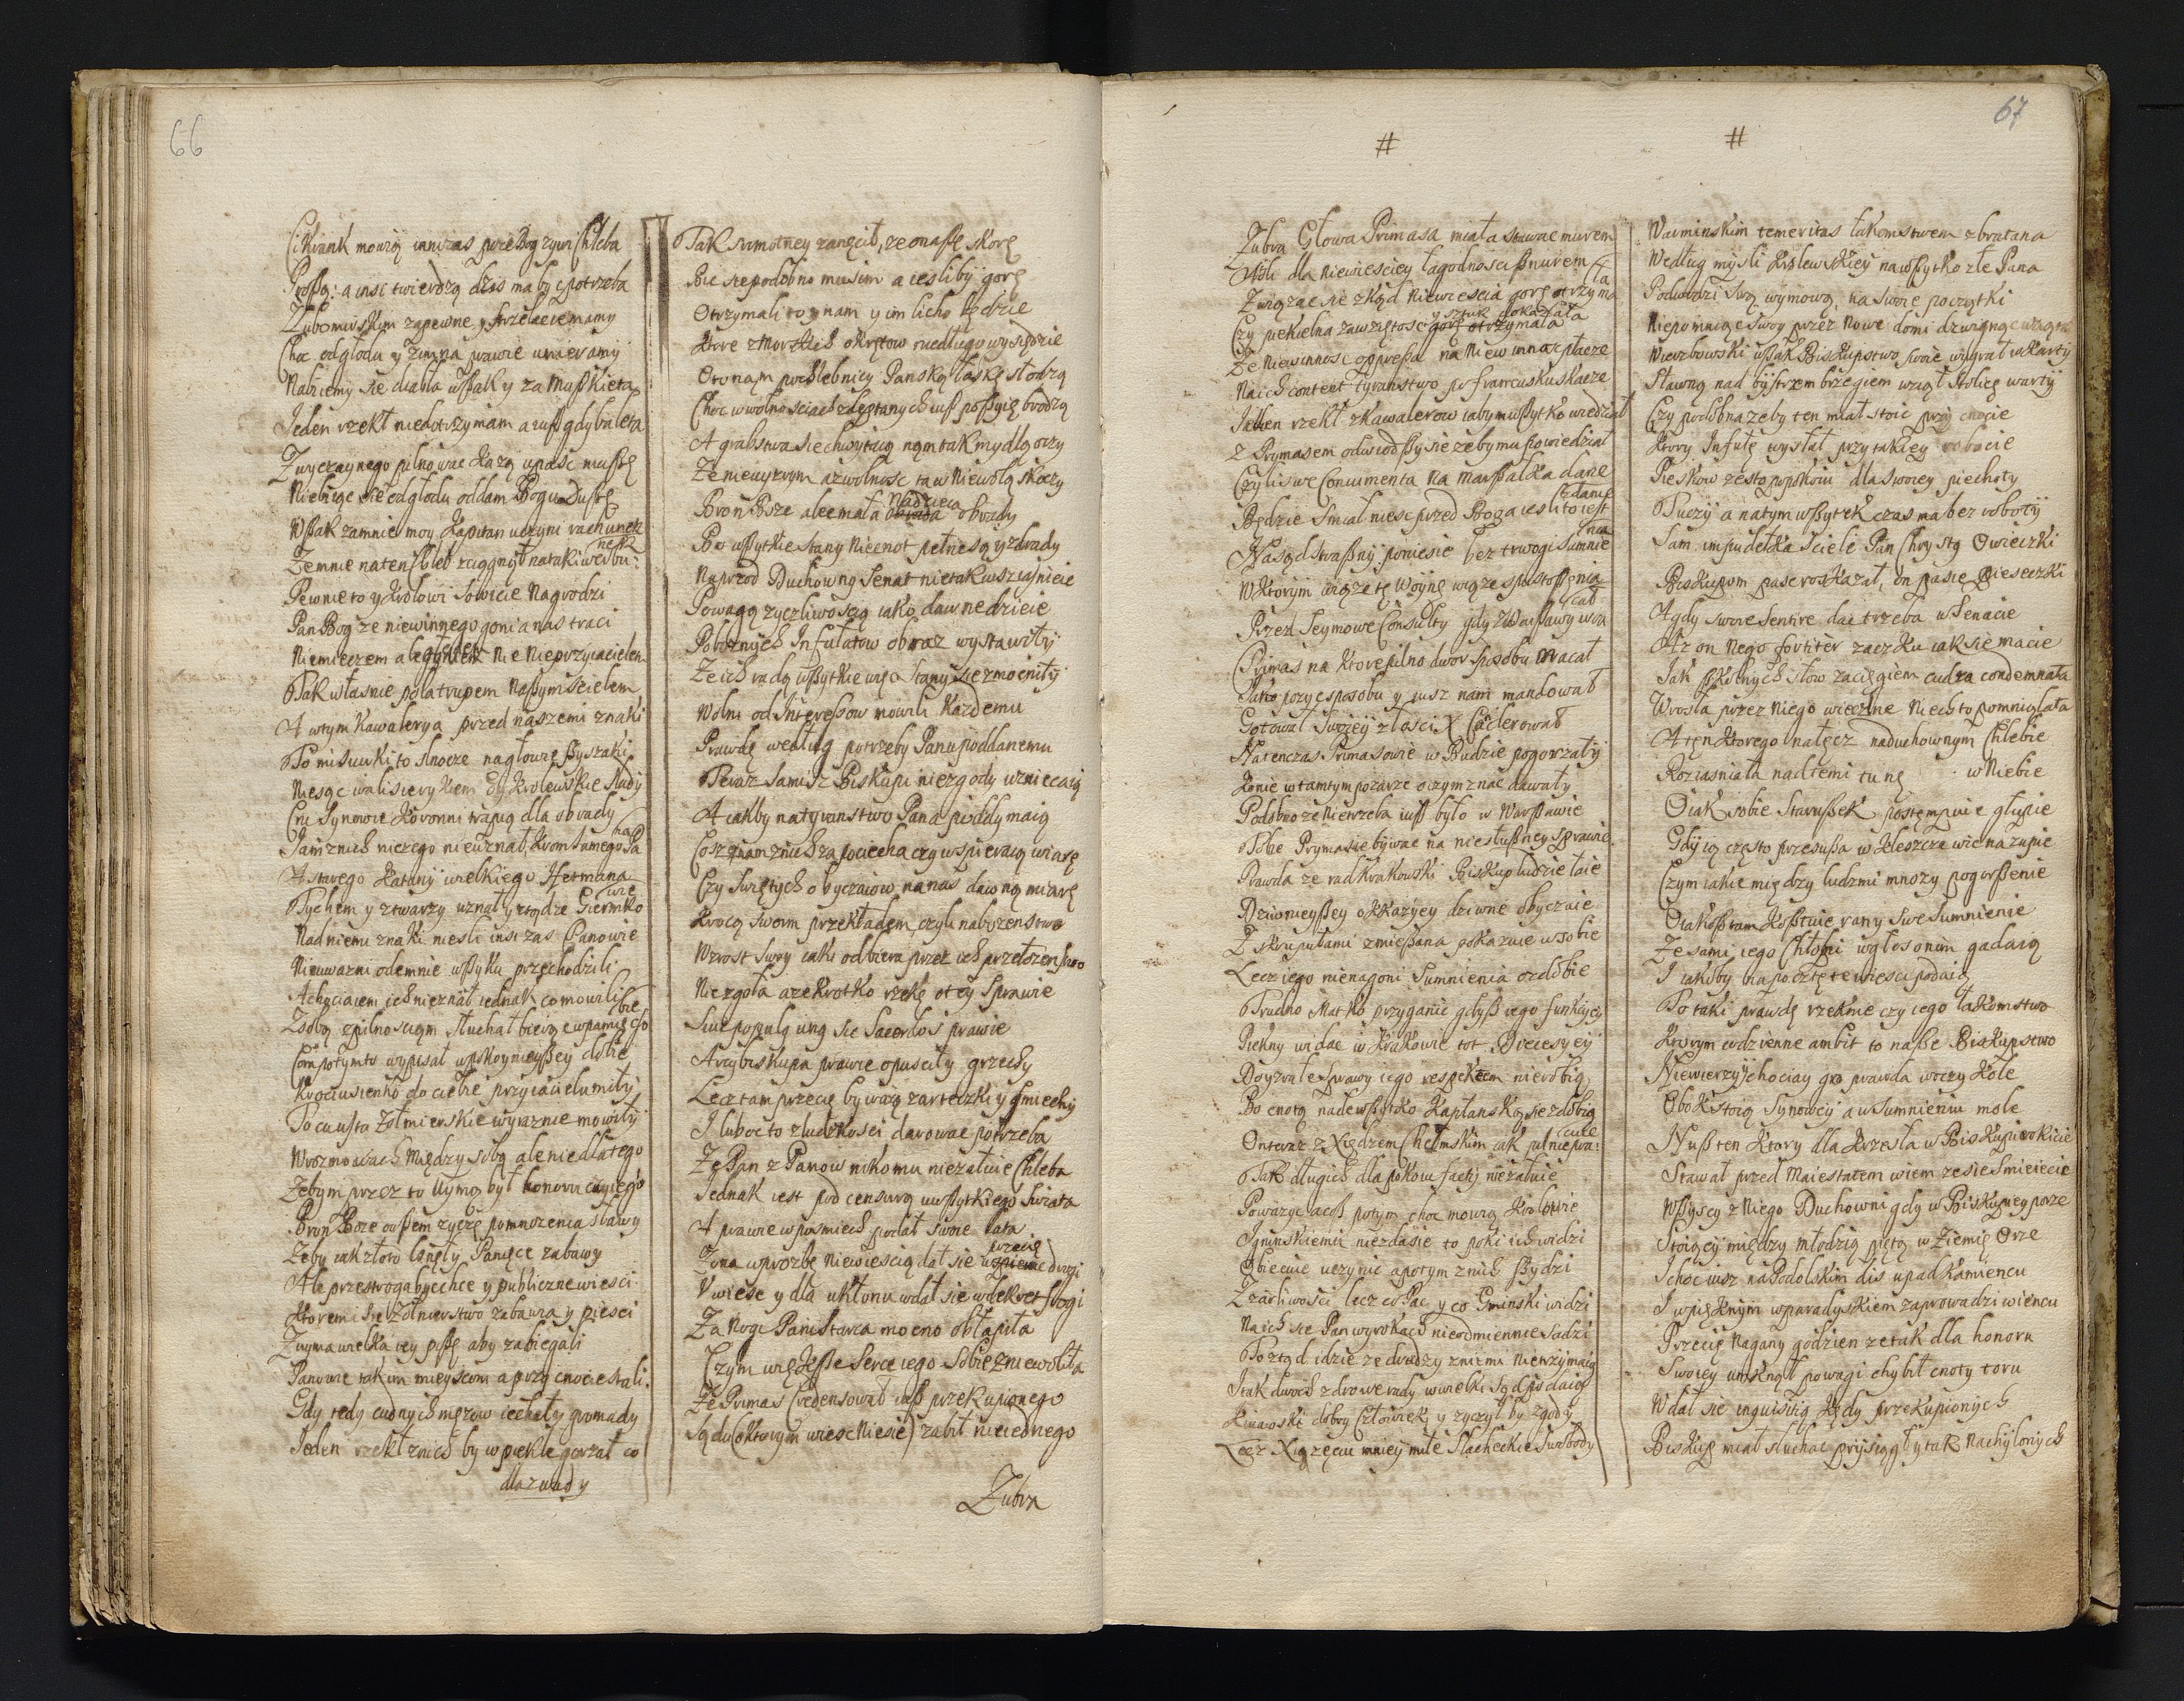 66
Ci Kwiank mowią inni zas przebog zywi Chleba
Proszą: a insi twierdzą dzis ma byc potrzeba
Z Lubomirskim zapewne, y strzelac iemamy
Choc odgłodu y zimna prawie umieramy
Nabiemy sie diabła wszak y za Muszkieta
Ieden rzekł niedotrzymam a iusz gdy baleta
Zwyczaynego pilnowac kazą upaśc muszę
Niebiiąc sie odgłodu oddam Bogu Duszę
Wszak zamnie moy Kapitan uczyni rachunek
Ze mnie naten Chleb zaciągnął na taki
Pewnie to y Krolowi sowicie Nagrodzi
Pan Bog ze niewinnego goni a nas traci
Niemieczem a legł głodem Nie Nieprzyiacielem
Tak własnie pola trupem Naszym scielem
A wtym Kawalerya przed naszemi znaki
Po misiurki to Anocze na głowię szyszaki
Niesąc
Cne Synowie Koronni trapią dla obrady
Iam znich niczego nieuznał, krom samego Pa na
A starego Katany wielkiego Hetmana
Tychem y ztwarzy uznał y ztądze
Nad niemi znaki niesli insi zas Panowie
Nieuwazni odemnie wszyku przechodzili
Achociaiem ich nieznał iednak co mowili
Zsobą zpilnosciąm słuchał bioiąc w pamięc so bie
Com potym to wypisał w pokoynieyszey dobie
Krociusienko do ciebie przyiacielu miły
To co usta Zołnierskie wyraznie mowiły
W rozmowach Między sobą ale nie dlatego
Zebym przez to Uymą był honoru czyiego
Bron Boze owszem zyczę pomnozenia sławy
Zeby iak złoro lsnęły Panięce zabawy
Ale przestroga bydz chce y publiczne wiesci
Ktoremi się Zołnierstwo zabawia y piesci
Z uyma wielka iey piszę aby zabiegali
Panowie takim mieyscom a przy cnocie stali.
Gdy tedy cudnych męzow iechały gromady
Ieden rzekł znich by w piekle gorzał co
dla zwady
Tak sromotney zaręcił, ze o naszę skorę
Bic sie podobno musim a iesliby gorę
Otrzymali to y nam y im licho będzie
Ktore zMorskich okrętow niedługo wysiędzie
Oto nąm pochlebnicy Panską łaskę słodzą
Choc w wolnosciach zdeptanych iusz poszyię brodzą
A grabstwa sie chwytaią nąm tak mydlą oczy
Ze nieuyzrym az wolnosc ta w Niewolą skoczy
Bron Boze ale mała Nadzieia obrady
Bo wszytkie stany Niecnot pełnesą y zdrady
Naprzod Duchowny Senat nie tak iusz iasnieie
Powagą zyczliwoscią iako dawne dzieie
Poboznych Infułatow obraz wystawiły
Ze ich radą wszytkie więc stany sie zmocniły
Wolni od Interessow mowili Kazdemu
Prawdę według potrzeby Panu poddanemu
Teraz sami z Biskupi niezgody wzniecaią
A iakby na tyranstwo Pana poddymaią
Cosz nąm znich za pociecha czy wspieraią wiarę
Czy swiętych obyczaiow na nas dawną miarę
Krocą swoim przekładem, czyli nabozenstwo
Wzrost swoy iaki odbiera przez ich przełozenstwo
Niezgoła aze Krotko rzekę otey sprawie
Siue populq ung sic Sacerdos prawie
Arcybiskupa prawie opusciły grzechy
Lecz tam przecię by waią zarteczki y smiechy
I luboc to zludzkosci darowac potrzeba
Ze Pan z Panow nikomu niezałuie Chleba
Iednak iest pod censurą wszytkiego Swiata
A prawie w posmiech podał swoie lata
Zona w prozbę Niewiescią dał sie przecię
Uwiesc y dla ukłonu wdał sie w dekret srogi
Za Nogi Pani Starca mocno obłapiła
Czym większe serce iego sobie zniewoliła
Ze Primas Credensował iusz przekupionego
Sądu (oktorym wiesc Niesie) zabił nieiednego
Zubra
67
#
#
Zubra Głowa Primasa miała stawac murem
Nisli dla Niewiesciey łagodnosci sznurem
Związac sie zkąd Niewiescia gorę otrzyma ła
Czy piekielna zawziętosc y sztuk dokazała
Ze Niewinnosc oppressa na Niewinnosc płacze
Na ich content tyranstwo po francusku skacze
Ieden rzekł zkawalerow iabym wszytko wiedział
Z Prymasem odwiodszy sie zeby mu powiedział
Czyli swe Concumenta na Marszałka dane
Będzie smiał niesc przed Boga iesli to iest zdanie
Na sąd strasznÿ poniesie bez trwogi sumnie nia
W ktorym wiąze tę Woynę wiąze spustoszenia
Przez Seymowe Consulty gdy z Warszawy wra cał
Primas na ktore pilno dwor sposobu macał
Iako pozyc sposobu y iusz nam mandował
Gotowac swoiey złosci X Caiclerował
Natenczas Primasowie w Budzie pogorzały
Konie w tamtym pozarze o czym znac dawały
Podobno ze Nietrzeba iusz było w Warszawie
Tobie Prymasie bywac na niesłuszney sprawie
Prawda ze rad krakowski Biskup ludzie łaie
Dziwnieyszey okkazyey dziwne obyczaie
Z skrupułami zmieszana pokazuie w sobie
Lecz iego nienagoni sumnienia ozdobie
Trudno Matko przyganic gdysz iego funkcyey
Piekny widac w Krakowie tot Processyey
Doyzrałe sprawy iego respektem nierobią
Bo cnotą nadewszytko Kapłanską sie zdobią
On teraz z Xiędzem Chełmskim iak pilnie pra: cuie
Tak długich dla pokoiu fackiy niezałuie
Powazyc a ich potym choc mowią krolowie
Gninskiemu niezdasie to poki ich widzi
Obiecuie uczynic a potym znich szydzi
Zzarliwosci lecz co Pac y co Gninski widzi
Na ich sie Pan wyrokach nieodmiennie sadzi
To ztąd idzie ze
I tak dwoch zdrowe rady w wielki sąd podaią
Kiiowski dobry człowiek y zyczył by zgody
Lecz Xiązęciu mniey miłe Slacheckie swobody
Warminskim temeritas łakomstwem zbratana
Według mysli Krolewskiey nawszytko złe Pana
Podwodzi swą wymową, na swoie początki
Niepomniąc swoy przez Nowe domi dzwignąc
Wierzbowski wszak Biskupstwo swoie wygrał w karty
Sławną nad bystrzem brzegiem wziął stolicę warty
Czy podobna zeby ten miał stoic przy cnocie
Ktory Infułę wysłał przy takiey robocie
Pieskow ze sto popokoiu dla swoiey piechoty
Tuczy a natym wszytek czas ma bez roboty
Sam impudetka scieli Pan Chrystą Owieczki
Biskupom pasc roskazał, on pasie Pieseczki
A gdy swoie sentire dac trzeba w Senacie
Az on Nego fortiter zaczku iak sie macie
Iak szkolnych słow zacięgiem cudza condemnata
Wrosła przez Niego wieczne Niech to pomni lata
A ten ktorego nałęcz na duchownym Chlebie
Roziasniała nadtemi tu nę w Niebie
O iak sobie staruszek postępuie głupie
Gdy ią często przesusza w kleszcze wie na zupie
Czym iakie między ludzmi mnozy pogorszenie
O iakosz tam kosztuie rany swe sumnienie
Ze sami iego Chłopi w głos o nim gadaią
I iakoby na pocztę te wiesci podaią
To taki prawdę rzeknie czy iego łakomstwo
Ktorym codzienne ambit to nasze Biskupstwo
Niewierzy chociay go prawda w oczy kole
Obok stoią synowcy a w sumnieniu mole
Nusz ten ktory dla krzesła w Biskupi rokicie
Stawał przed Maiestatem wiem ze sie smieiecie
Wszyscy z Niego Duchowni gdy w Biskupiey porze
Stoiącÿ między młodzią piętą w ziemię orze
I choc iusz na Podolskim dis upad Kamiencu
I w pięknym w paradyskiem zaprowadzi wiencu
Przecię Nagany godzien ze tak dla honoru
Swoiey umknął powagi chybił cnoty toru
Wdał sie inquisitią Kędy przekupionych
Biskup miał słuchac przysiągł y tak Nachylonych